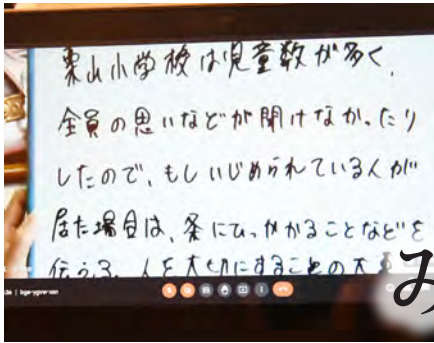 栗山小学校は児童数が多く、
全員の思いなどが聞けなかったり
したので、もしいじめられている人が
居た場合は、条にひっかかることなどを
伝うる、人を大切にすることの大
み